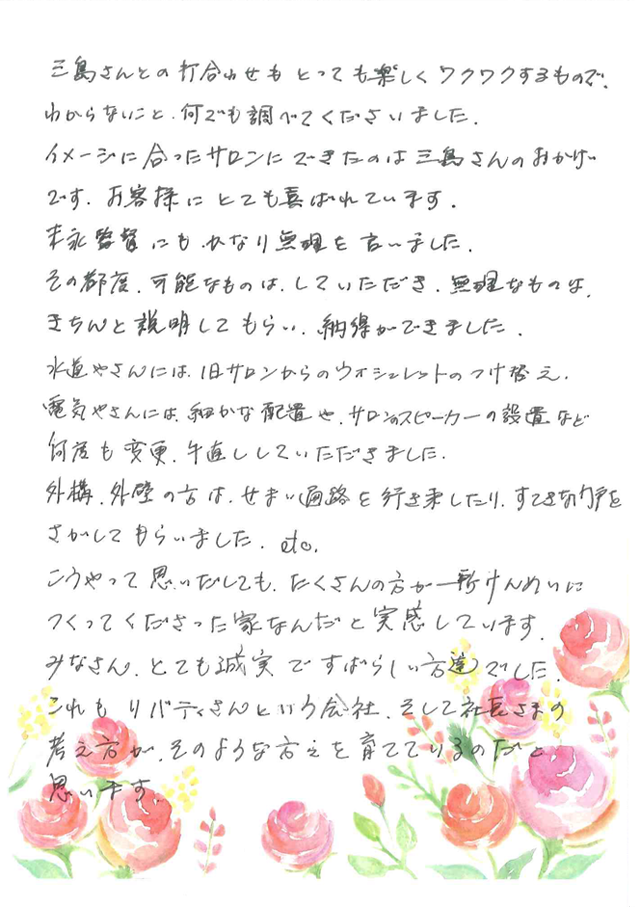 三島さんとの打合わせもとっても楽しくワクワクするもので、
わからないこと、何でも調べてくださいました。
イメージに合ったサロンにできたのは三島さんのおかげ
です。お客様にとても喜ばれています。
末永監督にもかなり無理を言いました。
その都度、可能なものは、していただき、無理なものは、
きちんと説明してもらい、納得ができました。
水道やさんには、旧サロンからのウォシュレットのつけ替え、
電気やさんには、細かな配置や、サロンのスピーカーの設置など
何度も変更、手直ししていただきました。
外構、外壁の方は、せまい通路を行き来したり、すてきな門戸を
さがしてもらいました。etc.
こうやって思いだしても、たくさんの方が一所けんめいに
つくってくださった家なんだと実感しています。
みなさん、とても誠実ですばらしい方達でした。
これもリバティさんという会社、そして社長さまの
考え方が、そのような方々を育てているのだと
思います。